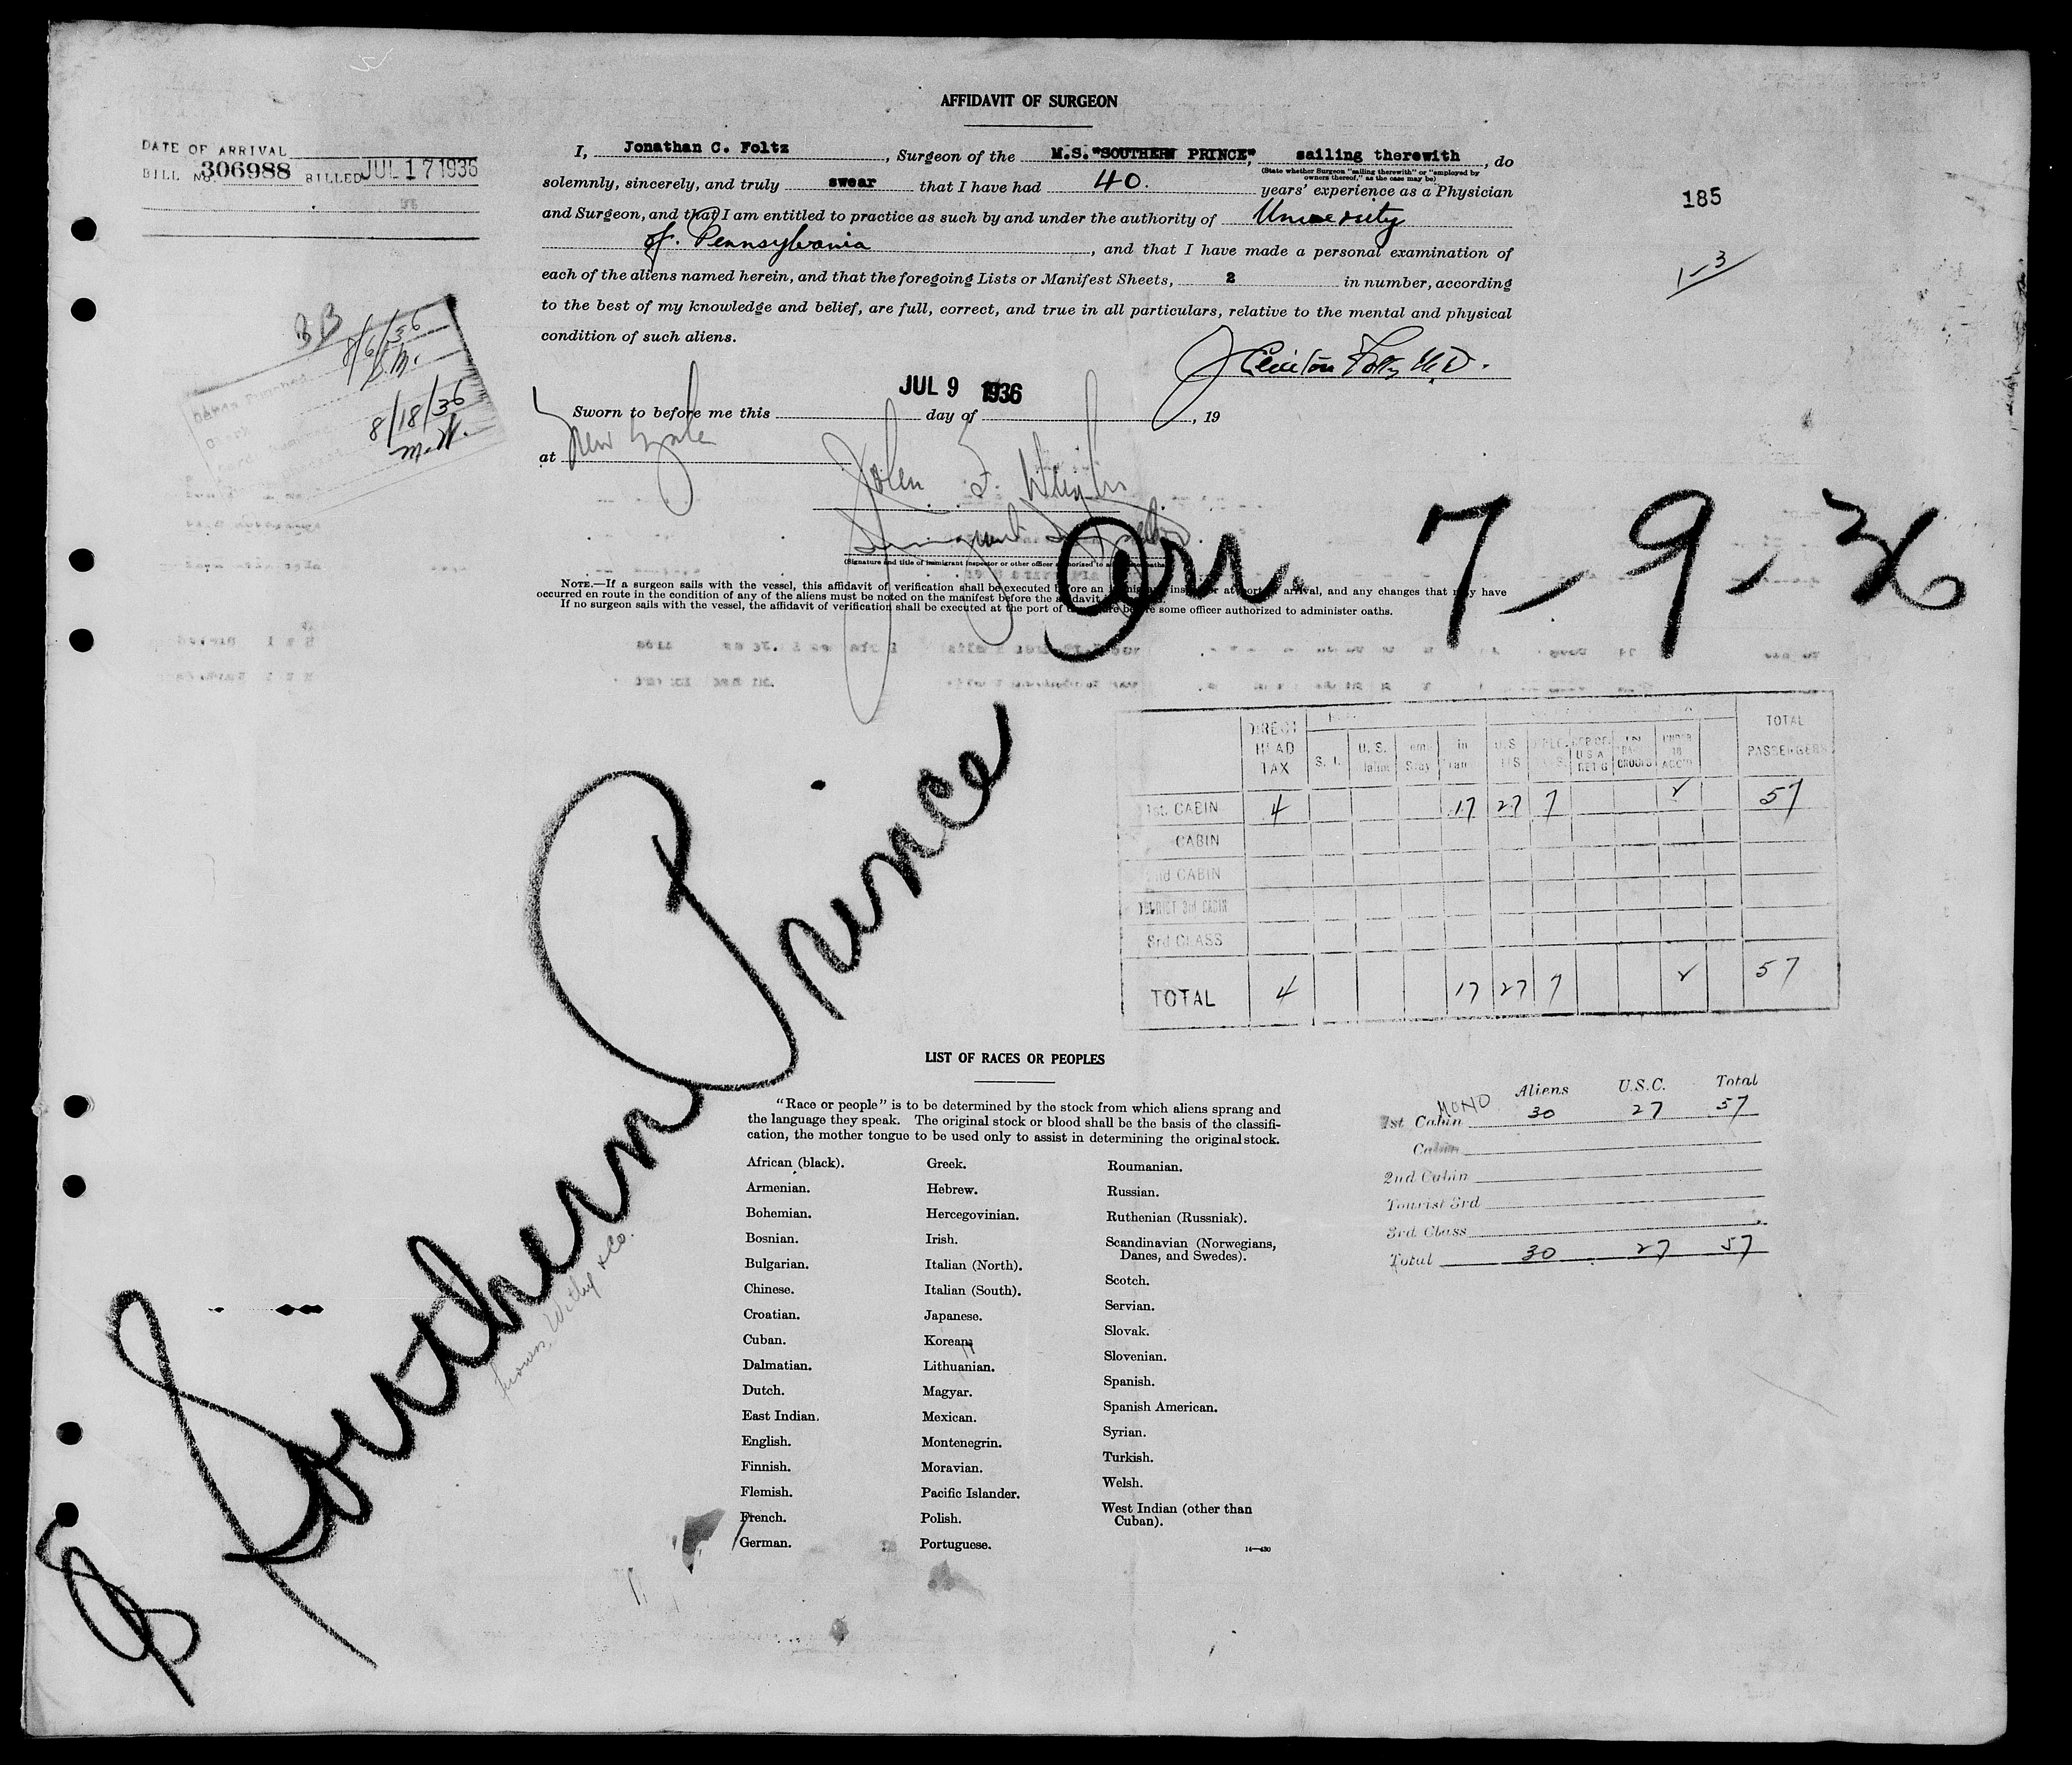 AFFIDAVIT OF SURGEON
DATE OF ARRIVAL
BILL NO. 306988 BILLED JUL 17 1936
I, Jonathan C. Foltz, Surgeon of the M.S. "SOUTHERN PRINCE", sailing therewith, do
(State whether Surgeon "sailing therewith" or "employed by
owners thereof," as the case may be)
solemnly, sincerely, and truly swear that I have had 40. years' experience as a Physician
and Surgeon, and that I am entitled to practice as such by and under the authority of University
of. Pennsylvania, and that I have made a personal examination of
each of the aliens named herein, and that the foregoing Lists or Manifest Sheets, 2 in number, according
to the best of my knowledge and belief, are full, correct, and true in all particulars, relative to the mental and physical
condition of such aliens.
185
1-3
BB
8/6/36
8/18/36
M.H.
J Clinton Foltz M.D.
JUL 9 1936
Sworn to before me this day of , 19
at New York
John F.
Immigrant Inspector
(Signature and title of immigrant inspector or other officer authorized to administer oaths)
Arr. 7-9-36
NOTE.—If a surgeon sails with the vessel, this affidavit of verification shall be executed before an immigrant inspector at port of arrival, and any changes that may have
occurred en route in the condition of any of the aliens must be noted on the manifest before the affidavit
If no surgeon sails with the vessel, the affidavit of verification shall be executed at the port of departure before some officer authorized to administer oaths.
S Southern Prince
DIRECT HEAD TAX
S. I.
U. S.
in Tran
U.S
UNDER 16 ACC'D
TOTAL PASSENGERS
1st. CABIN 4 17 27 7 ✓ 57
CABIN
2nd CABIN
TOURIST 3rd CABIN
3rd CLASS
TOTAL 4 17 27 7 ✓ 57
LIST OF RACES OR PEOPLES
"Race or people" is to be determined by the stock from which aliens sprang and
the language they speak. The original stock or blood shall be the basis of the classifi-
cation, the mother tongue to be used only to assist in determining the original stock.
African (black).
Armenian.
Bohemian.
Bosnian.
Bulgarian.
Chinese.
Croatian.
Cuban.
Dalmatian.
Dutch.
East Indian.
English.
Finnish.
Flemish.
French.
German.
Greek.
Hebrew.
Hercegovinian.
Irish.
Italian (North).
Italian (South).
Japanese.
Korean.
Lithuanian.
Magyar.
Mexican.
Montenegrin.
Moravian.
Pacific Islander.
Polish.
Portuguese.
Roumanian.
Russian.
Ruthenian (Russniak).
Scandinavian (Norwegians,
Danes, and Swedes).
Scotch.
Servian.
Slovak.
Slovenian.
Spanish.
Spanish American.
Syrian.
Turkish.
Welsh.
West Indian (other than
Cuban).
14—430
Aliens U.S.C. Total
MONO
1st Cabin 30 27 57
Cabin
2nd Cabin
Tourist 3rd
3rd Class
Total 30 27 57
Withy & Co.